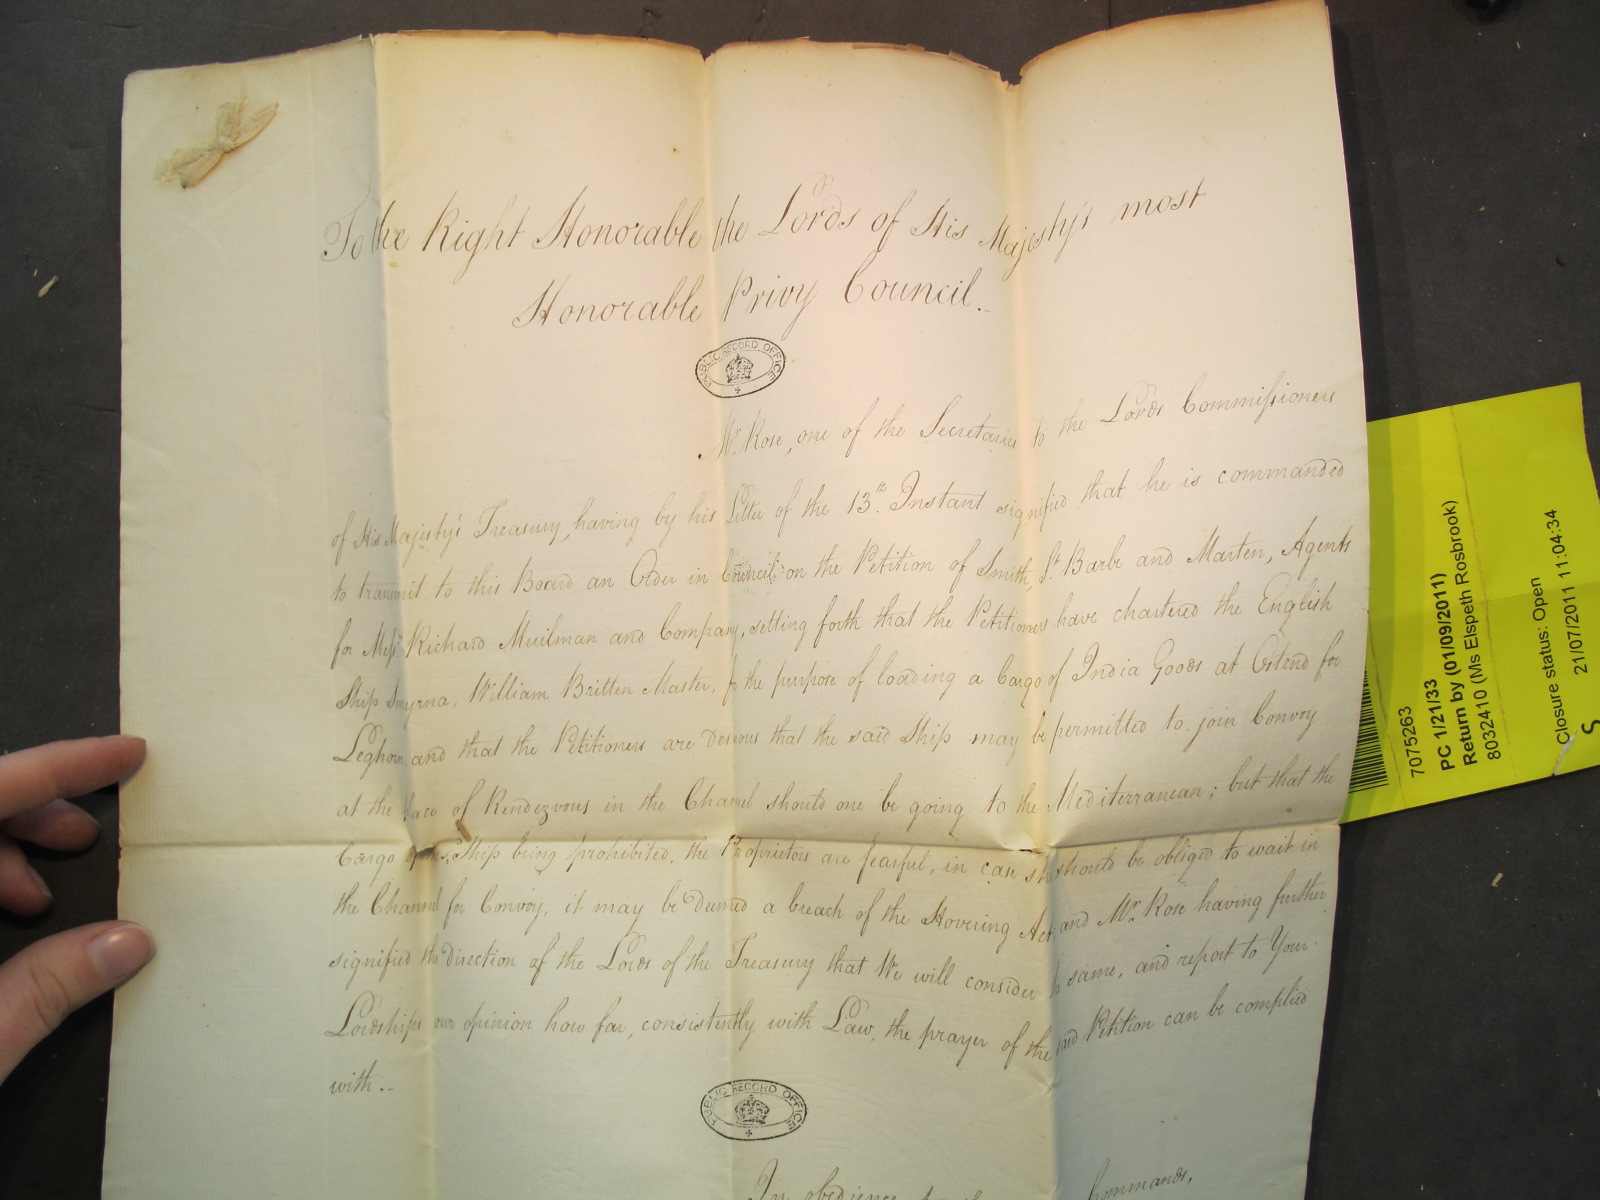 To the Right Honorable the Lords of His Majesty's most
Honorable Privy Council..
PUBLIC RECORD OFFICE
Mr. Rose, one of the Secretaries to the Lords Commissioners
of His Majesty's Treasury, having by his Letter of the 13th. Instant signified that he is commanded
to transmit to this Board an Order in Council on the Petition of Smith, St. Barbe and Marten, Agents
for Messrs. Richard Muilman and Company, setting forth that the Petitioners have chartered the English
Ship Smyrna, William Britten Master, for the purpose of loading a Cargo of India Goods at Ostend for
Leghorn and that the Petitioners are desirous that the said Ship may be permitted to join Convoy
at the place of Rendezvous in the Channel should one be going to the Mediterranean; but that the
Cargo of the Ship being prohibited, the Proprietors are fearful, in case she should be obliged to wait in
the Channel for Convoy, it may be deemed a breach of the Hovering Act and Mr. Rose having further
signified the direction of the Lords of the Treasury that We will consider the same, and report to Your
Lordships our opinion how far, consistently with Law, the prayer of the said Petition can be complied
with..
PUBLIC RECORD OFFICE
In obedience Commands,
7075263
PC 1/21/33
Return by (01/09/2011)
8032410 (Ms Elspeth Rosbrook)
Closure status: Open
21/07/2011 11:04:34
S